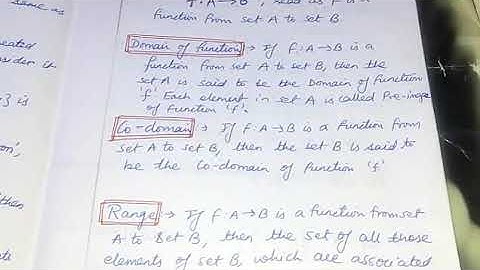 same as
eated
sider it
} is
on',
then
ate
f: A→B, read as f is a
function from set A to set B
Domain of function → If f: A→B is a
function from set A to set B, then the
set A is said to be the Domain of function
'f'. Each element in set A is called Pre-image
of function 'f'.
Co-domain → If f: A→B is a function from
set A to set B, then the set B is said to
be the Co-domain of function 'f'
Range → If f: A→B is a function from set
A to Set B, then the set of all those
elements of set B, which are associated